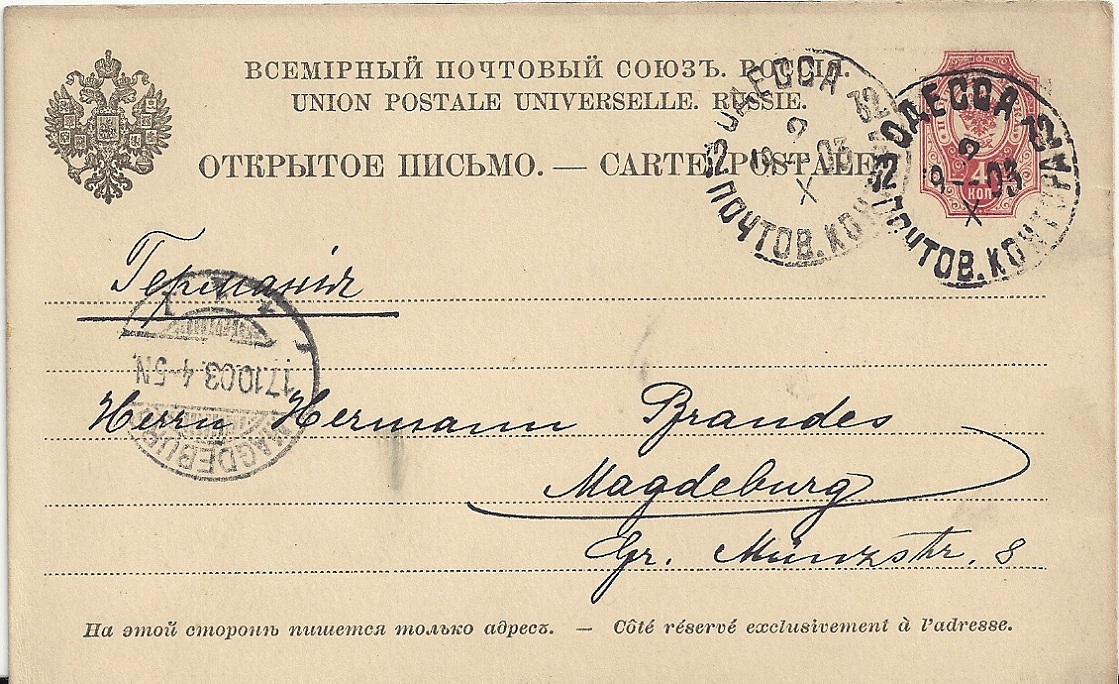 ВСЕМІРНЫЙ ПОЧТОВЫЙ СОЮЗЪ. РОССІЯ.
UNION POSTALE UNIVERSELLE. RUSSIE.
ОТКРЫТОЕ ПИСЬМО. — CARTE POSTALE
ОДЕССА
12 12
9
19 — 03
X
ПОЧТОВ. КОНТОРА
ОДЕССА
12 12
9
19 — 03
X
ПОЧТОВ. КОНТОРА
4
КОП
Германія
17.10.03. 4-5 N.
MAGDEBURG
Herrn Hermann Brandes
Magdeburg
Gr. Münzstr. 8
На этой сторонѣ пишется только адресъ. — Côté réservé exclusivement à l'adresse.